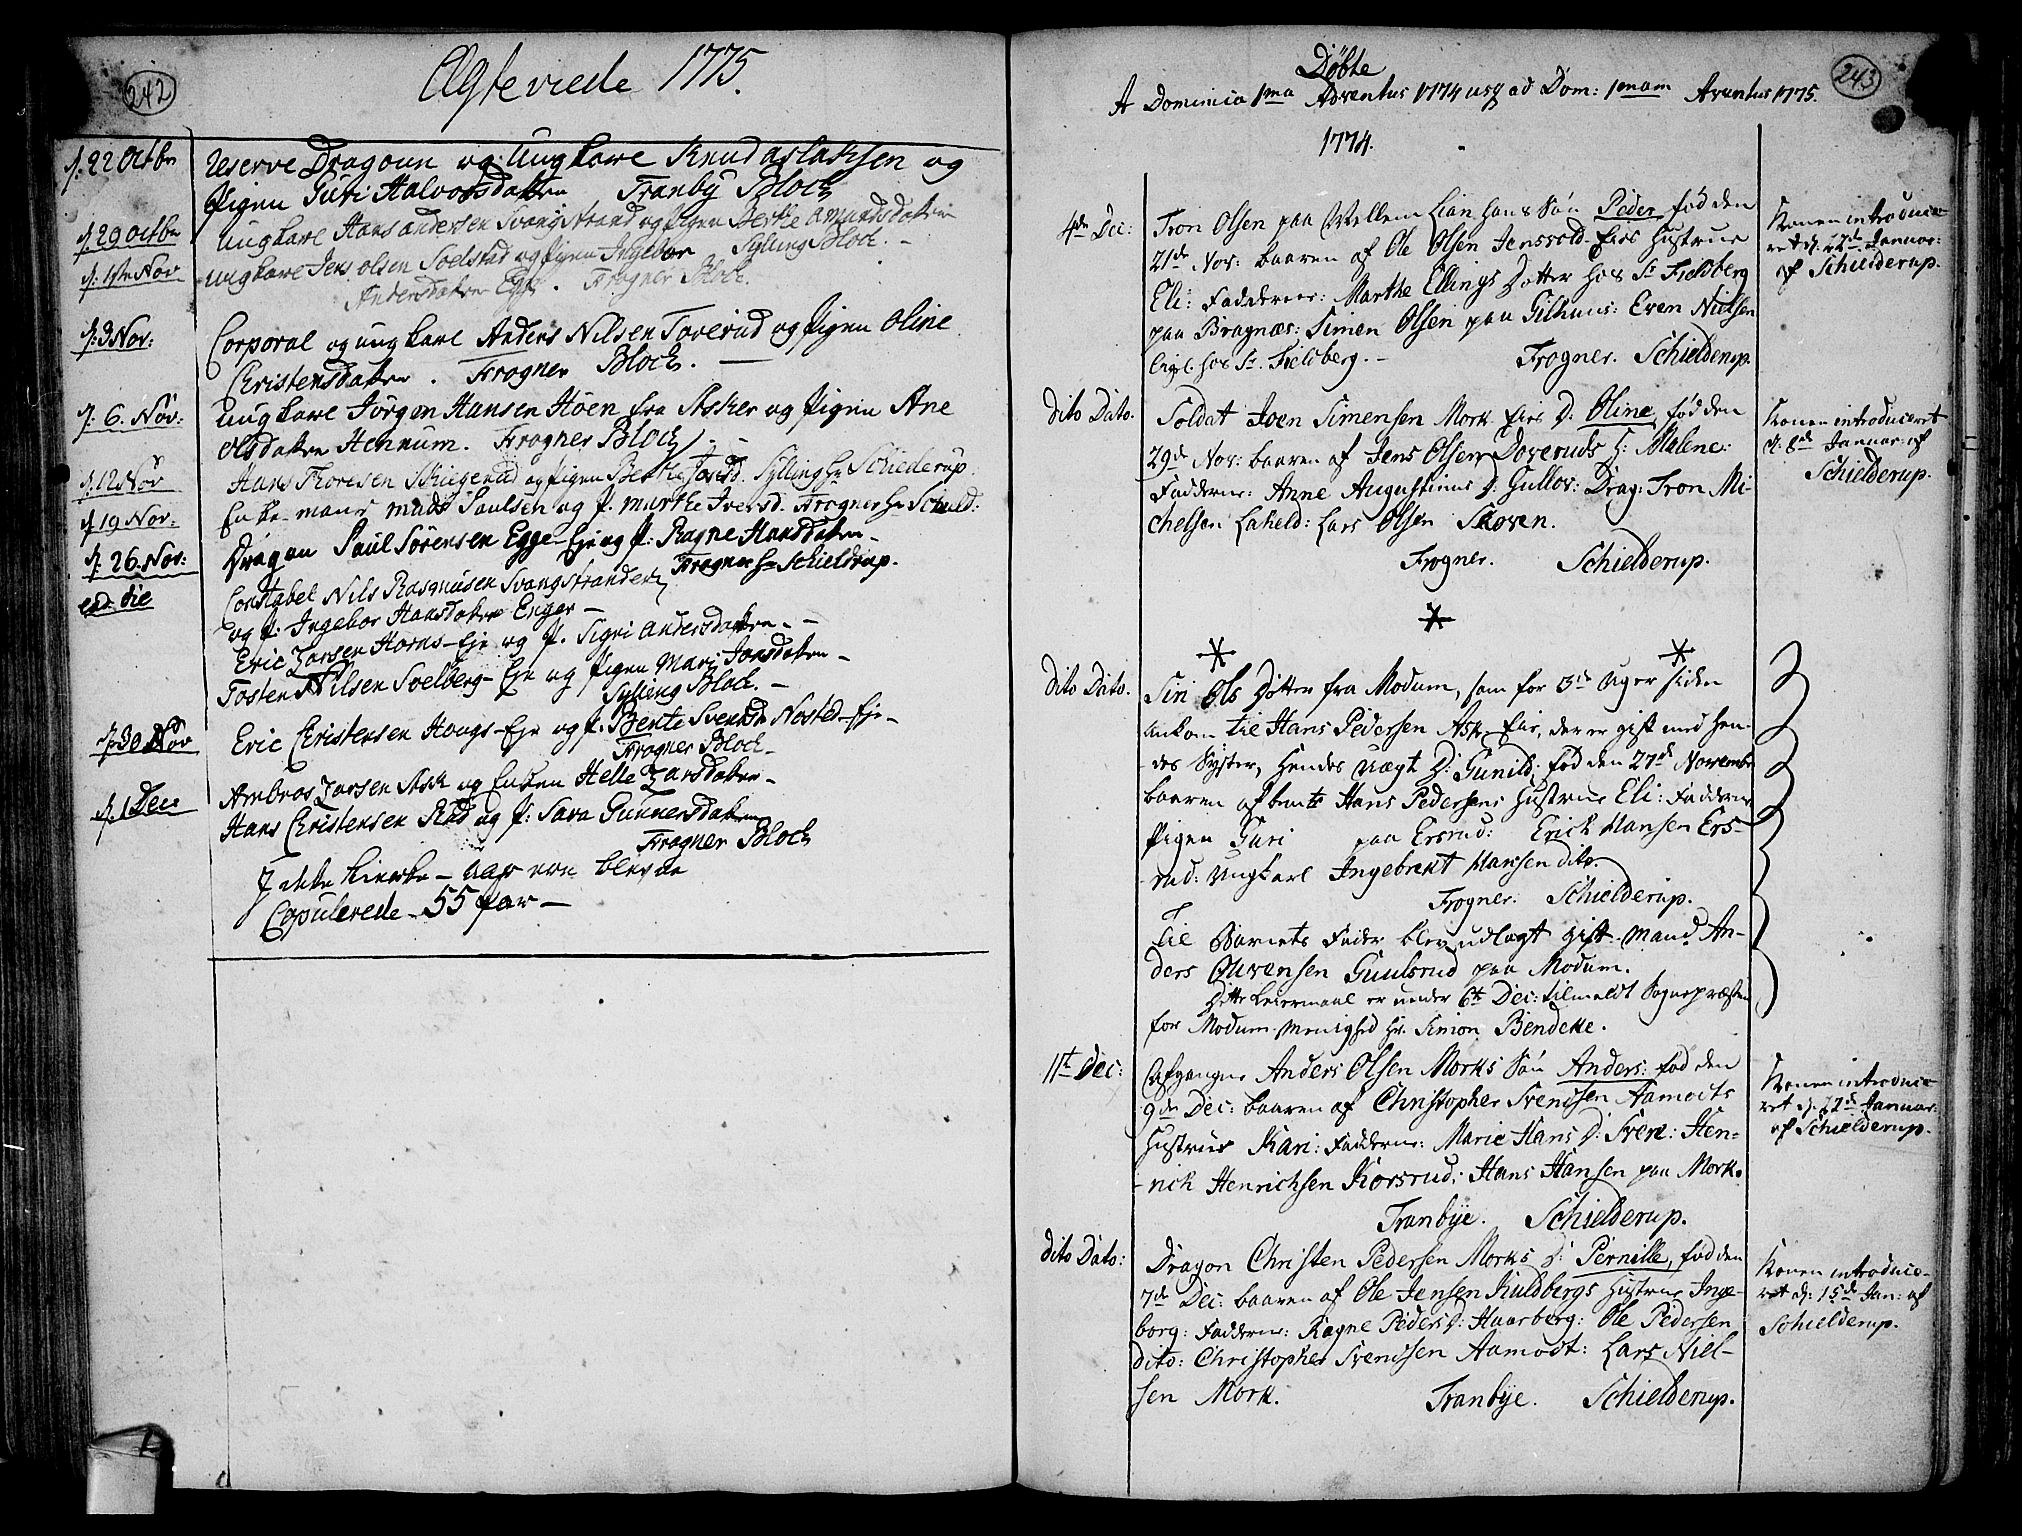 242
Ægteviede 1775.
d. 22 Octbr
Reserve Dragoun og Ungkarl Knud Aslaksen og
Pigen Guri Halvorsdatter Tranby Bloch
d. 29 Octbr
Ungkarl Hans Andersen Svangstrand og Pigen Berthe Amundsdatter
Sylling Bloch. -
d: 1te Nov
ungkarl Jens Olsen Solstad og Pigen Ingebor
Andersdatter Egge. Frogner Bloch.
d: 3 Nov:
Corporal og ungkarl Anders Nilsen Toverud og Pigen Oline
Christensdatter. Frogner Bloch. —
d: 6. Nov:
ungkarl Jörgen Hansen Höen fra Asker og Pigen Ane
Olsdatter Hennum. Frogner Bloch . -
d: 12 Nov
Hans Thoresen Skiigerud og Pigen Berthe Joensd. Sylling Hr Schielderup.
d 19 Nov:
Enke-mand Mads Paulsen og P. Marthe Iversd. Frogner Hr Schield:
d. 26. Nov:
Dragon Paul Sörensen Egge-Eje og P: Ragne Hansdatter -
Frogner Hr Schieldrup.
eod die
Constabel Nils Rasmusen Svangstrander
og P: Ingebor Hansdatter Enger -
Eric Larsen Horns-Eje og P. Sigri Andersdatter. -
Tosten Nilsen Solberg-Eje og Pigen Mari Jonsdatter -
Sylling Bloch. -
d: 30 Nov
Eric Christensen Haugs-Eje og P. Bente Svensdr Nosted-Eje -
Frogner Bloch -
Ambros Larsen Ask og Enken Helle Larsdatter -
d. 1 Dec:
Hans Christensen Röd og P: Sara Gunnersdatter
Frogner Bloch
I dette Kierke-Aar ere blevne
Copulerede 55 par -
243
Döbte
A Dominica 1ma Adventus 1774 usq ad Dom: 1mam Aventus 1775.
1774.
4de Dec:
Tron Olsen paa Villem Lian hans Sön Peder, föd den
21de Nov: baaren af Ole Olsen Jensvold-Eies Hustrue
Eli: Fadderne: Marthe Ellings Dotter hos Sr Fieldberg
paa Bragnæs: Simen Olsen paa Gilhuus: Even Nielsen
ligel. hos Sr. Fieldberg. - Frogner. Schielderup.
Konen introduce-
ret d: 22de Januar:
af Schielderup.
Dito Dato.
Soldat Joen Simensen Mork-Eies D: Oline, föd den
29de Nov: baaren af Jens Olsen Doveruds H: Malene:
Fadderne: Anne Augustinus D: Gullov: Drag: Tron Mi-
chelsen Laheld: Lars Olsen Skoven.
Frogner. Schielderup.
Konen introduceret
d: 8de Januar: af
Schielderup.
Dito Dato.
Siri Ols Dotter fra Modum, som for 3de Uger siden
ankom til Hans Pedersen Ask-Eie, der er gift med hen-
des Syster, hendes uægt D: Gunild, föd den 27de November
baaren af bemte Hans Pedersens Hustrue Eli: Fadderne
Pigen Guri paa Ersrud: Erich Hansen Ers-
rud: Ungkarl Ingebrekt Hansen dito.
Frogner. Schielderup.
Til Barnets Fader blev udlagt gift-mand An-
ders Ouvensen Guulsrud paa Modum.
Dette Leiermaal er under 6te Dec: tilmeldt Sognepræsten
for Modum-Menighed Hr. Simon Bendeke.
11te Dec:
Afgangne Anders Olsen Morks Sön Anders: föd den
9de Dec: baaren af Christopher Svendsen Aamodts
Hustrue Kari: Fadderne: Marie Hans D: Svere: Hen-
rich Henrichsen Korsrud: Hans Hansen paa Mork.
Tranbye. Schielderup.
Konen introduce-
ret d: 22de Januar:
af Schielderup.
Dito Dato:
Dragon Christen Pedersen Morks D: Pernille, föd den
7de Dec: baaren af Ole Jensen Kuldbergs Hustrue Inge-
borg: Fadderne: Ragne Peders D: Haarberg: Ole Pedersen
dito: Christopher Svendsen Aamodt: Lars Niel-
sen Mork. Tranbye. Schielderup.
Konen introduce-
ret d: 15de Jan: af
Schielderup.